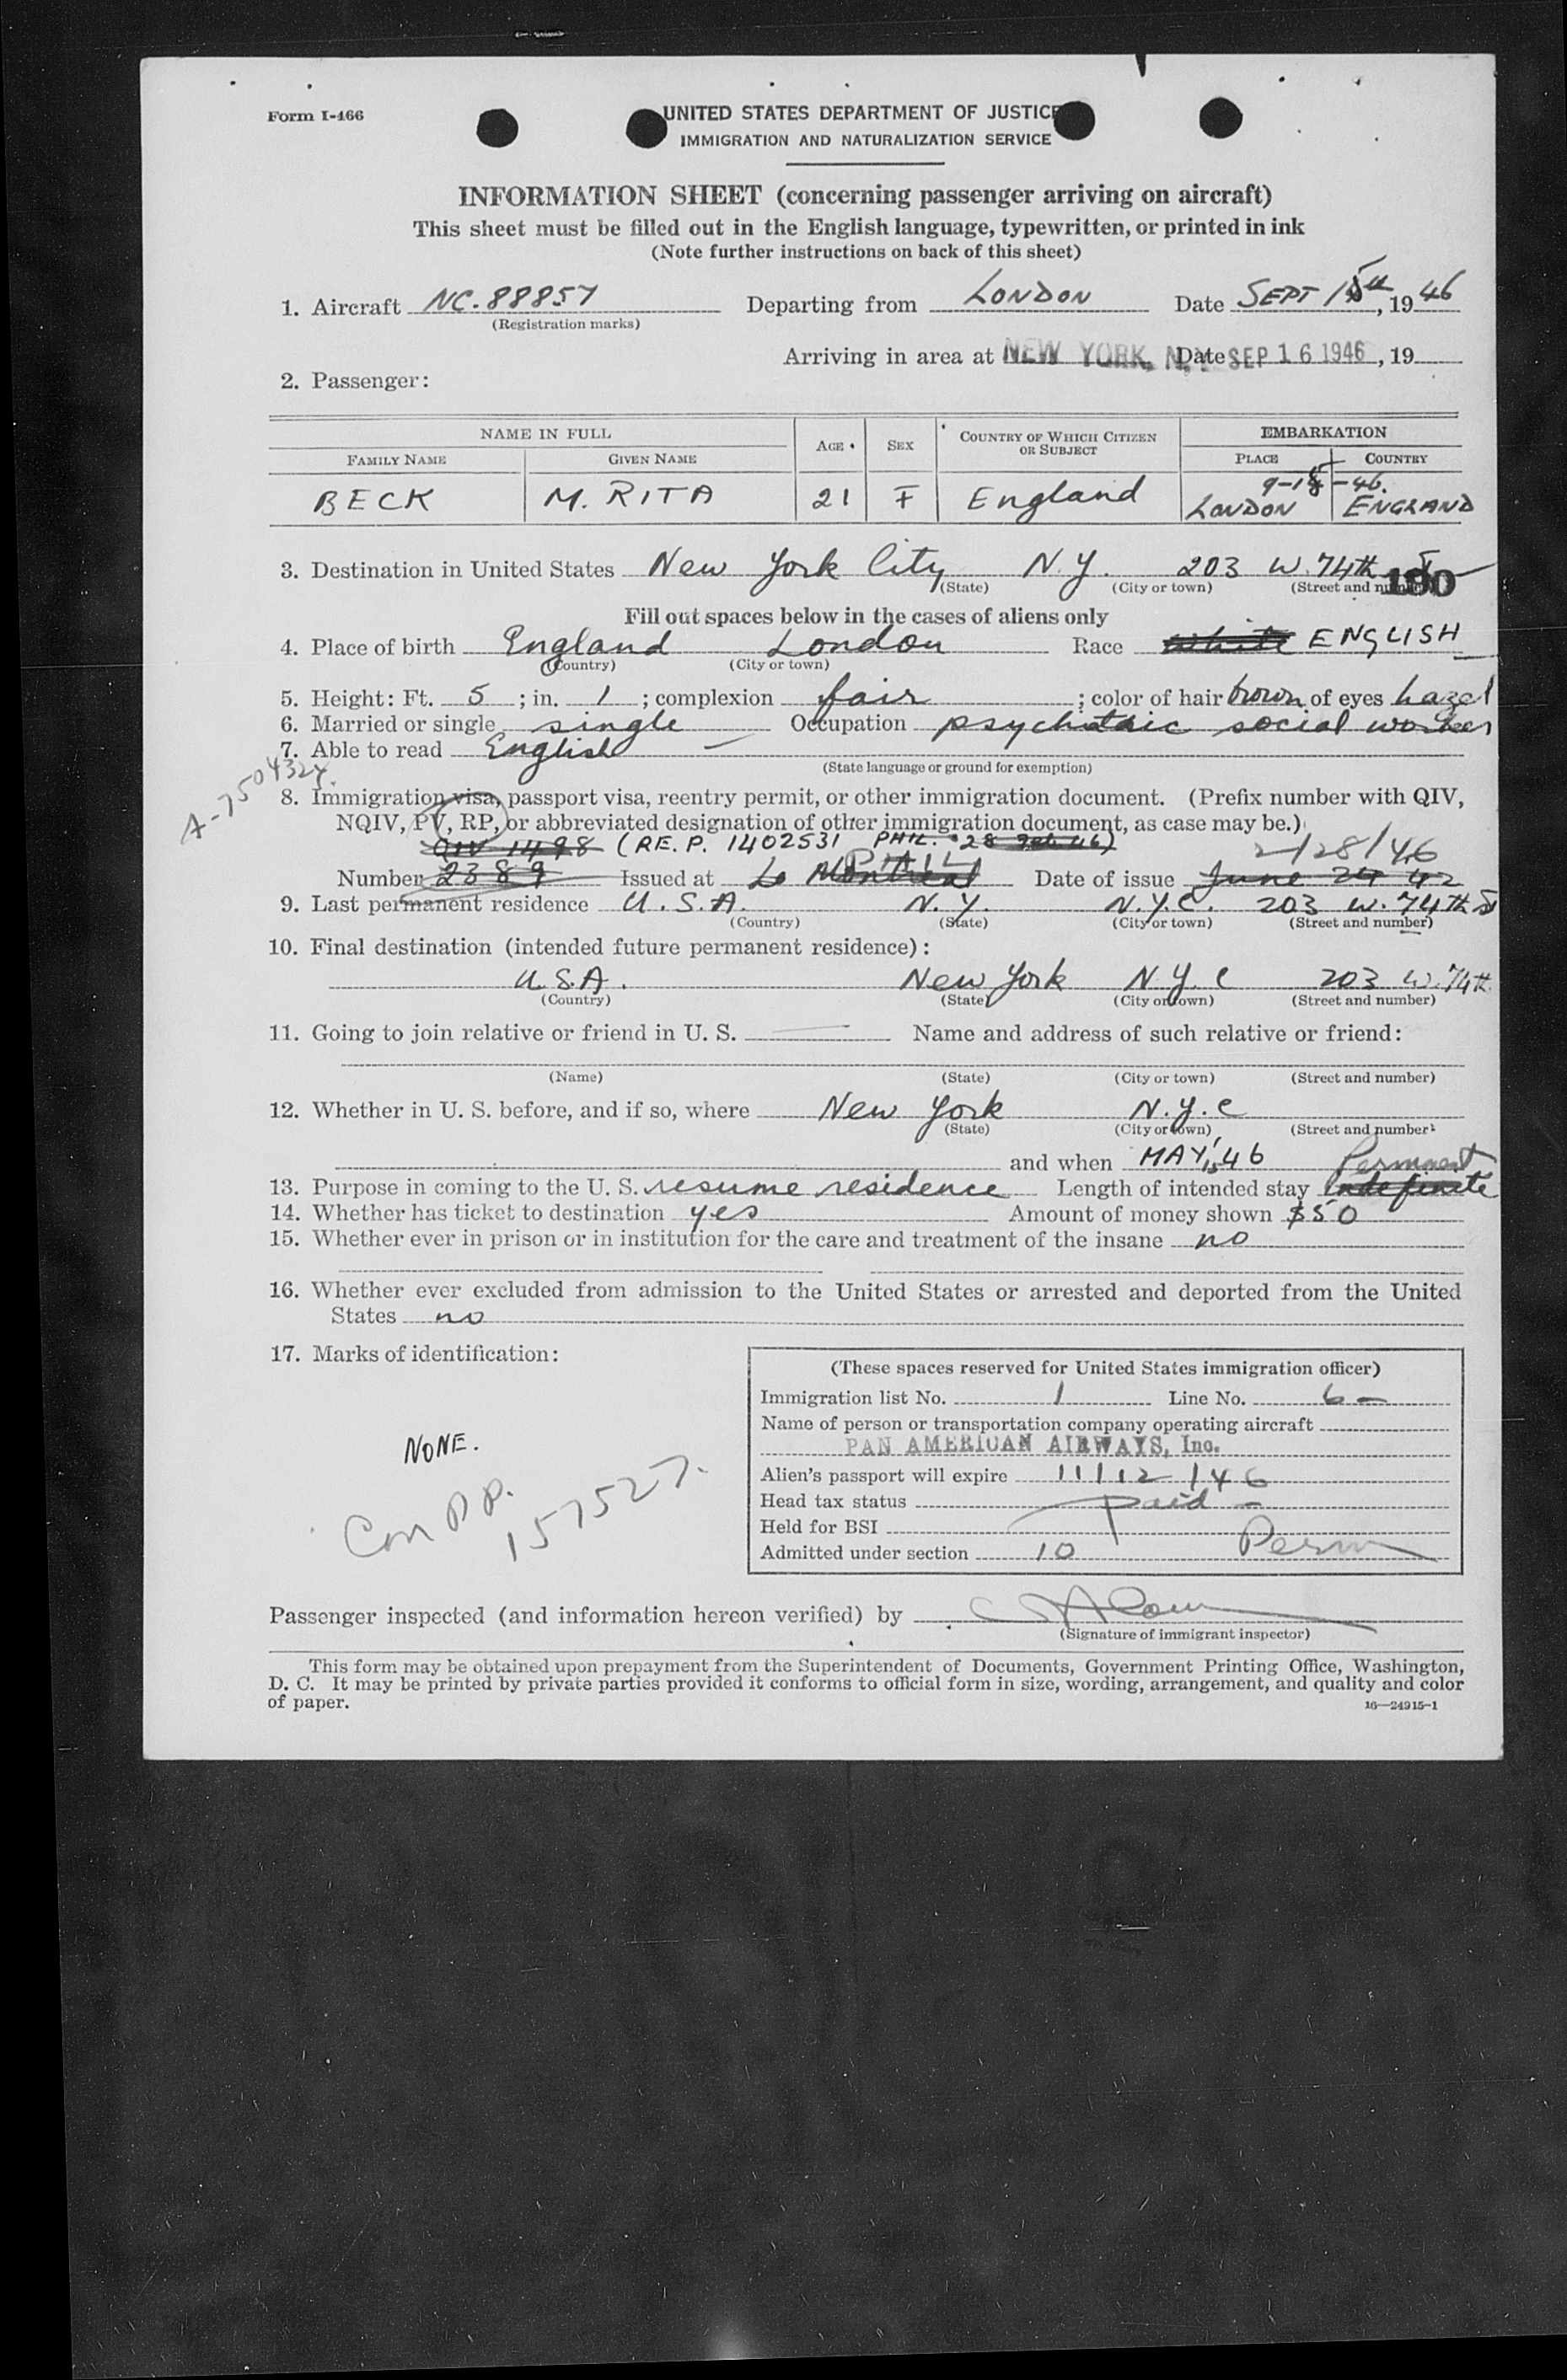 Form I-466
UNITED STATES DEPARTMENT OF JUSTICE
IMMIGRATION AND NATURALIZATION SERVICE
INFORMATION SHEET (concerning passenger arriving on aircraft)
This sheet must be filled out in the English language, typewritten, or printed in ink
(Note further instructions on back of this sheet)
1. Aircraft NC. 88857 Departing from LONDON Date SEPT 15th, 1946
(Registration marks)
Arriving in area at NEW YORK, N.Y. Date SEP 16 1946, 19
2. Passenger:
NAME IN FULL AGE SEX COUNTRY OF WHICH CITIZEN OR SUBJECT EMBARKATION
FAMILY NAME GIVEN NAME PLACE COUNTRY
9-15-46.
BECK M. RITA 21 F England LONDON ENGLAND
3. Destination in United States New York City N.Y. 203 W. 74th
(State) (City or town) (Street and number)
Fill out spaces below in the cases of aliens only
4. Place of birth England London Race white ENGLISH
(Country) (City or town)
5. Height: Ft. 5; in. 1; complexion fair; color of hair brown of eyes hazel
6. Married or single single Occupation psychiatric social worker
7. Able to read English
(State language or ground for exemption)
A-7504324.
8. Immigration visa, passport visa, reentry permit, or other immigration document. (Prefix number with QIV,
NQIV, PV, RP, or abbreviated designation of other immigration document, as case may be.)
QIV 1498 (RE. P. 1402531 PHIL. 28 Feb 46) 2/28/46
PHIL
Number 2389 Issued at Montreal Date of issue June 24 42
9. Last permanent residence U.S.A. N.Y. N.Y.C. 203 W. 74th St
(Country) (State) (City or town) (Street and number)
10. Final destination (intended future permanent residence):
U.S.A. New York N.Y.C 203 W. 74th
(Country) (State) (City or town) (Street and number)
11. Going to join relative or friend in U. S. Name and address of such relative or friend:
(Name) (State) (City or town) (Street and number)
12. Whether in U. S. before, and if so, where New York N.Y.C
(State) (City or town) (Street and number)
and when MAY, 46 Permanent
13. Purpose in coming to the U. S. resume residence Length of intended stay indefinite
14. Whether has ticket to destination yes Amount of money shown $50
15. Whether ever in prison or in institution for the care and treatment of the insane no
16. Whether ever excluded from admission to the United States or arrested and deported from the United
States no
17. Marks of identification:
NONE.
Con PP. 157527.
(These spaces reserved for United States immigration officer)
Immigration list No. 1 Line No. 6
Name of person or transportation company operating aircraft
PAN AMERICAN AIRWAYS, Inc.
Alien's passport will expire 11/12/46
Head tax status paid
Held for BSI
Admitted under section 10 Perm
Passenger inspected (and information hereon verified) by
(Signature of immigrant inspector)
This form may be obtained upon prepayment from the Superintendent of Documents, Government Printing Office, Washington,
D. C. It may be printed by private parties provided it conforms to official form in size, wording, arrangement, and quality and color
of paper.
16—24915-1